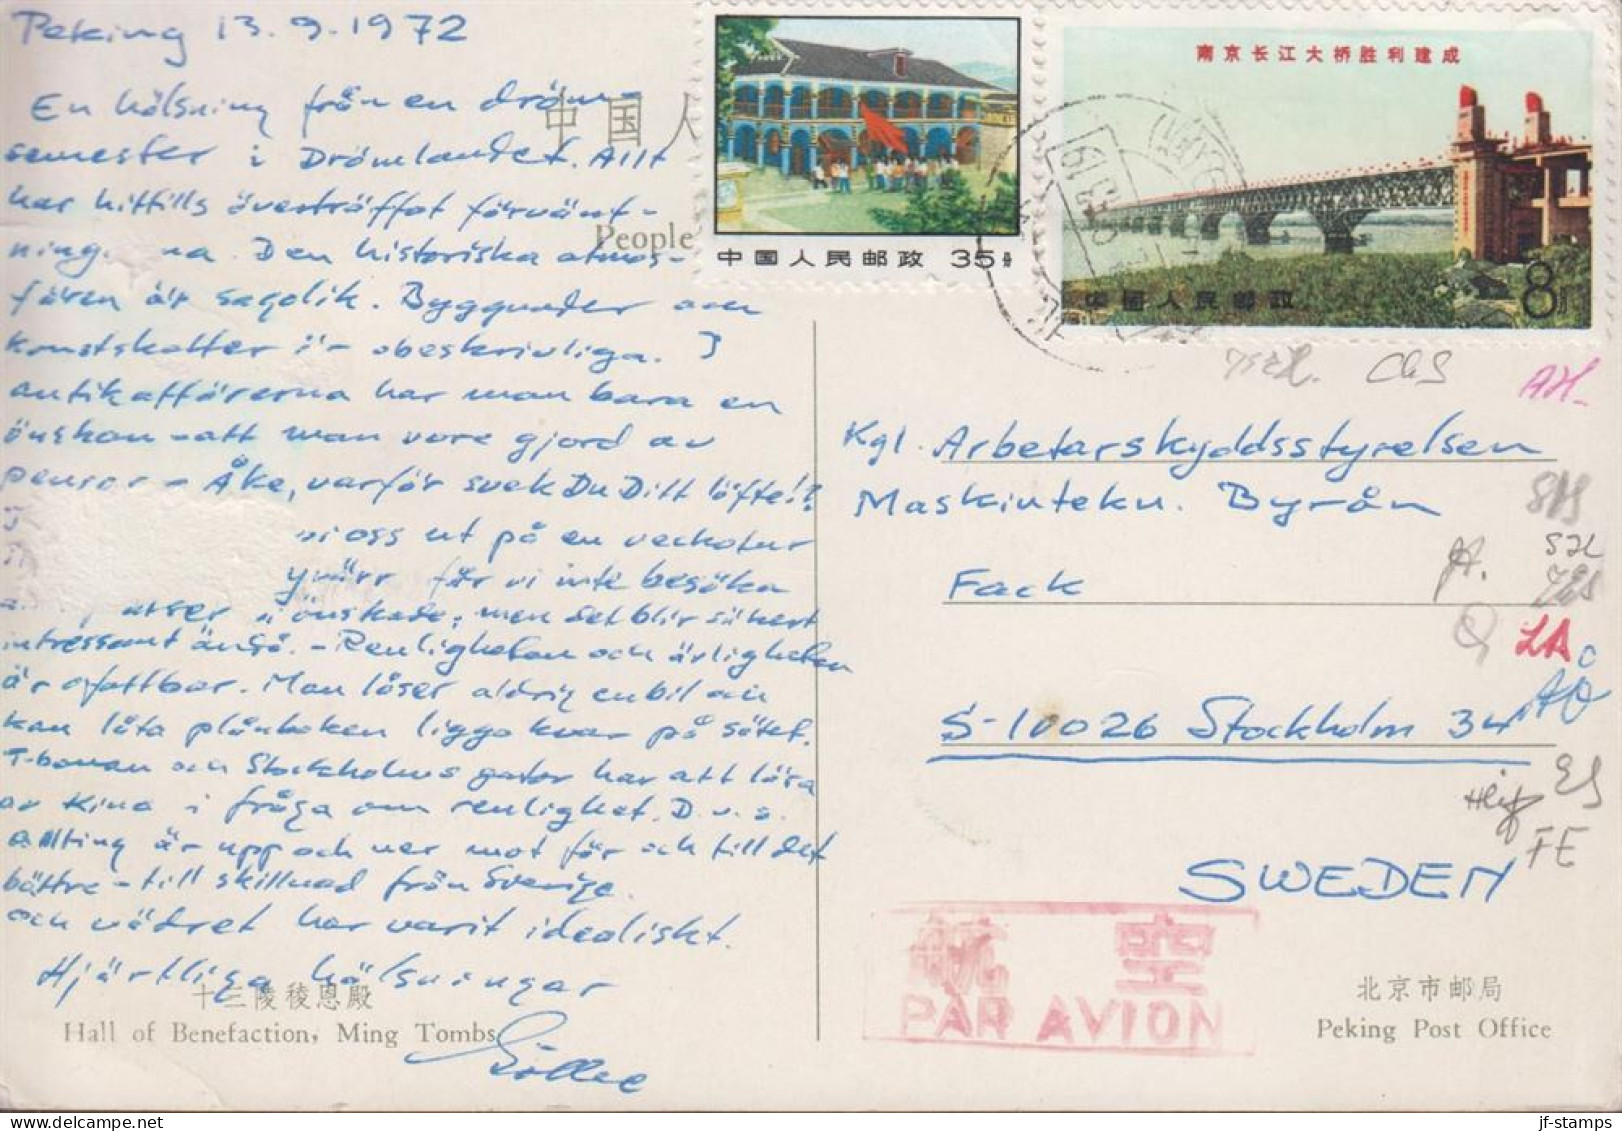 Peking 13.9.1972
En hälsning från en dröm-
semester i Drömlandet. Allt
har hittills överträffat förvänt-
ning na. Den historiska atmos-
fären är sagolik. Byggnader och
konstskatter är obeskrivliga. I
antikaffärerna har man bara en
önskan - att man vore gjord av
pengar - Åke, varför svek Du Ditt löfte!?
oss ut på en veckotur
får vi inte besöka
platser vi önskade, men det blir säkert
intressant ändå. - Renligheten och ärligheten
är ofattbar. Man låser aldrig en bil och
kan låta plånboken ligga kvar på sätet.
T-banan och Stockholms gator har att lära
av Kina i fråga om renlighet. D.v.s.
allting är upp och ner mot för och till det
bättre - till skillnad från Sverige.
och vädret har varit idealiskt.
Hjärtliga hälsningar
中国人
People
十三陵稜恩殿
Hall of Benefaction, Ming Tombs
中国人民邮政 35分
南京长江大桥胜利建成
中国人民邮政 8分
AH
Kgl. Arbetarskyddsstyrelsen
Maskintekn. Byrån
Fack
S-10026 Stockholm 34
SWEDEN
LA
ES
FE
航空
PAR AVION
北京市邮局
Peking Post Office
jf-stamps